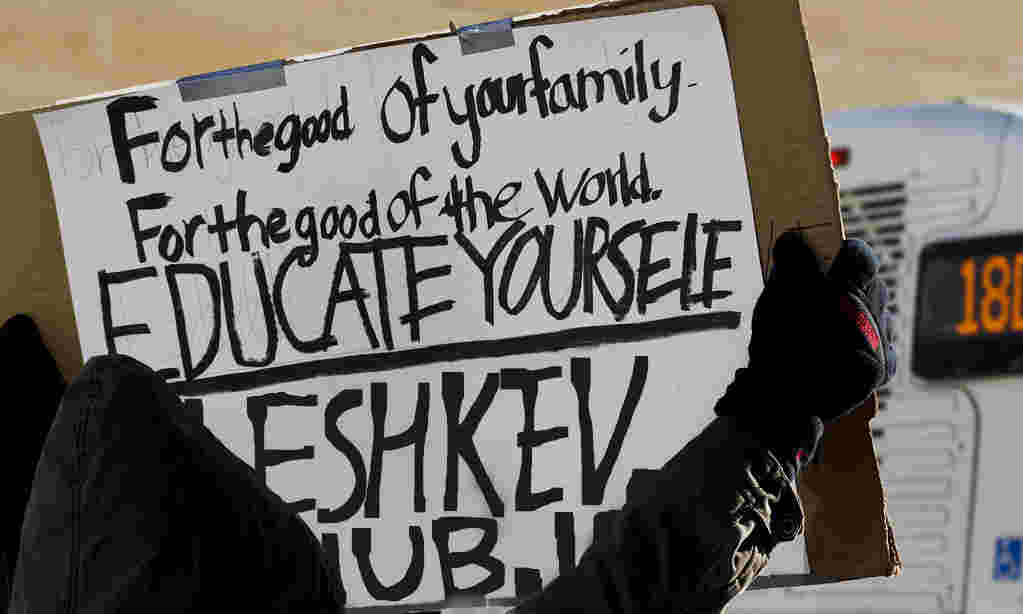 For the good Of your family.
For the good of the World.
EDUCATE YOURSELF
LESHKEV.
HUB.
18L